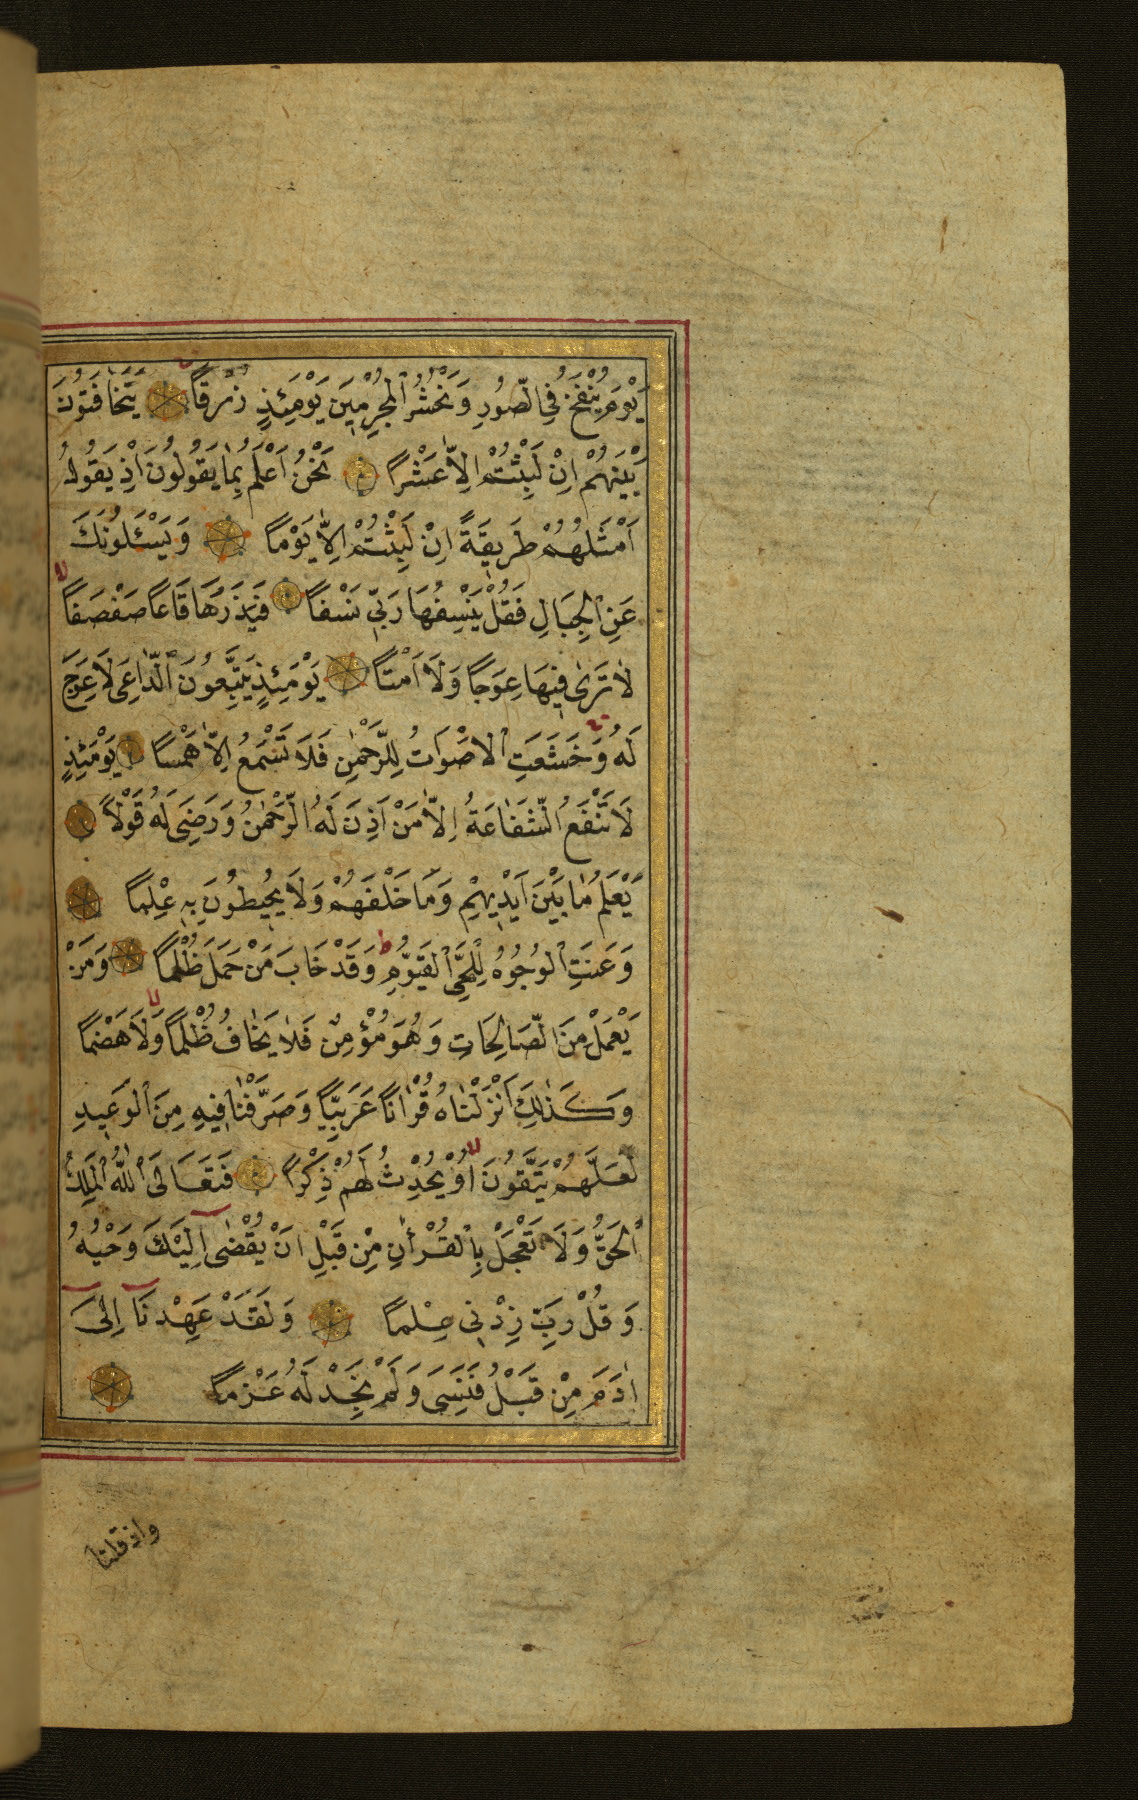 يَوْمَ يُنْفَخُ فِي الصُّورِ وَنَحْشُرُ الْمُجْرِمِينَ يَوْمَئِذٍ زُرْقًا يَتَخَافَتُونَ
بَيْنَهُمْ اِنْ لَبِثْتُمْ اِلَّا عَشْرًا نَحْنُ اَعْلَمُ بِمَا يَقُولُونَ اِذْ يَقُولُ
اَمْثَلُهُمْ طَرِيقَةً اِنْ لَبِثْتُمْ اِلَّا يَوْمًا وَيَسْـَٔلُونَكَ
عَنِ الْجِبَالِ فَقُلْ يَنْسِفُهَا رَبِّي نَسْفًا فَيَذَرُهَا قَاعًا صَفْصَفًا
لَا تَرٰى فِيهَا عِوَجًا وَلَا اَمْتًا يَوْمَئِذٍ يَتَّبِعُونَ الدَّاعِيَ لَا عِوَجَ
لَهُ وَخَشَعَتِ الْاَصْوَاتُ لِلرَّحْمٰنِ فَلَا تَسْمَعُ اِلَّا هَمْسًا يَوْمَئِذٍ
لَا تَنْفَعُ الشَّفَاعَةُ اِلَّا مَنْ اَذِنَ لَهُ الرَّحْمٰنُ وَرَضِيَ لَهُ قَوْلًا
يَعْلَمُ مَا بَيْنَ اَيْدِيهِمْ وَمَا خَلْفَهُمْ وَلَا يُحِيطُونَ بِهِ عِلْمًا
وَعَنَتِ الْوُجُوهُ لِلْحَيِّ الْقَيُّومِ ط وَقَدْ خَابَ مَنْ حَمَلَ ظُلْمًا وَمَنْ
يَعْمَلْ مِنَ الصَّالِحَاتِ وَهُوَ مُؤْمِنٌ فَلَا يَخَافُ ظُلْمًا وَلَا هَضْمًا
وَكَذٰلِكَ اَنْزَلْنَاهُ قُرْاٰنًا عَرَبِيًّا وَصَرَّفْنَا فِيهِ مِنَ الْوَعِيدِ
لَعَلَّهُمْ يَتَّقُونَ اَوْ يُحْدِثُ لَهُمْ ذِكْرًا فَتَعَالَى اللّٰهُ الْمَلِكُ
الْحَقُّ وَلَا تَعْجَلْ بِالْقُرْاٰنِ مِنْ قَبْلِ اَنْ يُقْضٰى اِلَيْكَ وَحْيُهُ
وَقُلْ رَبِّ زِدْنِي عِلْمًا وَلَقَدْ عَهِدْنَا اِلٰى
اٰدَمَ مِنْ قَبْلُ فَنَسِيَ وَلَمْ نَجِدْ لَهُ عَزْمًا
واذ قلنا